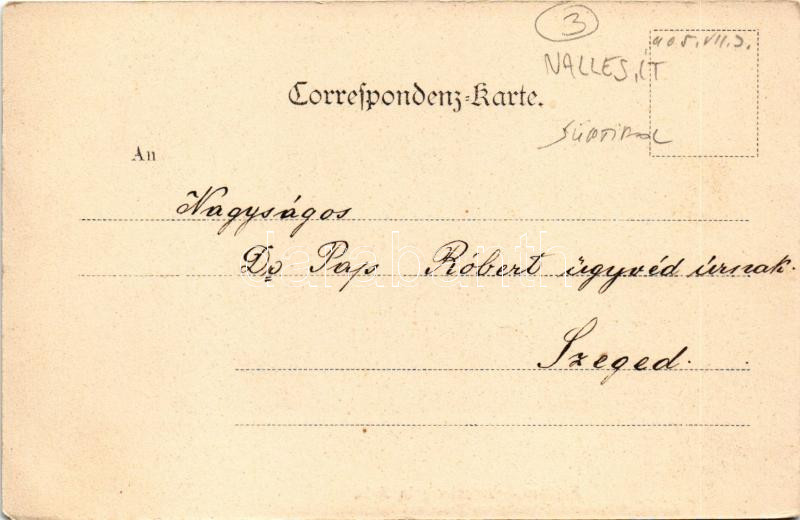 3
905.VII.3.
NALLES, IT
Correspondenz-Karte.
SÜDTIROL
An
Nagyságos
Dr Pap Róbert ügyvéd úrnak.
darabanth
Szeged.